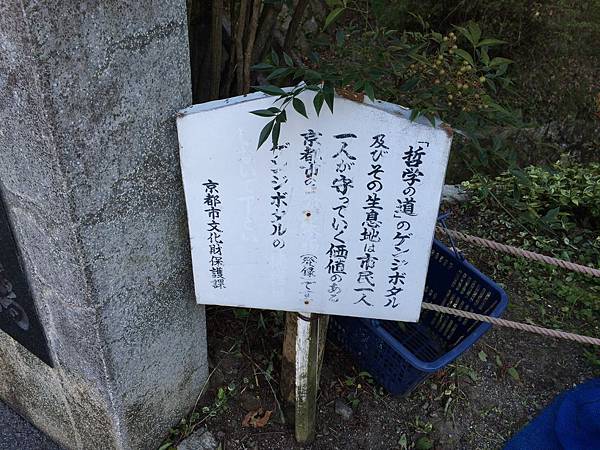 「哲学の道」のゲンジボタル
及びその生息地は市民一人
一人が守っていく価値のある
京都市の
登録です
ゲンジボタルの
京都市文化財保護課